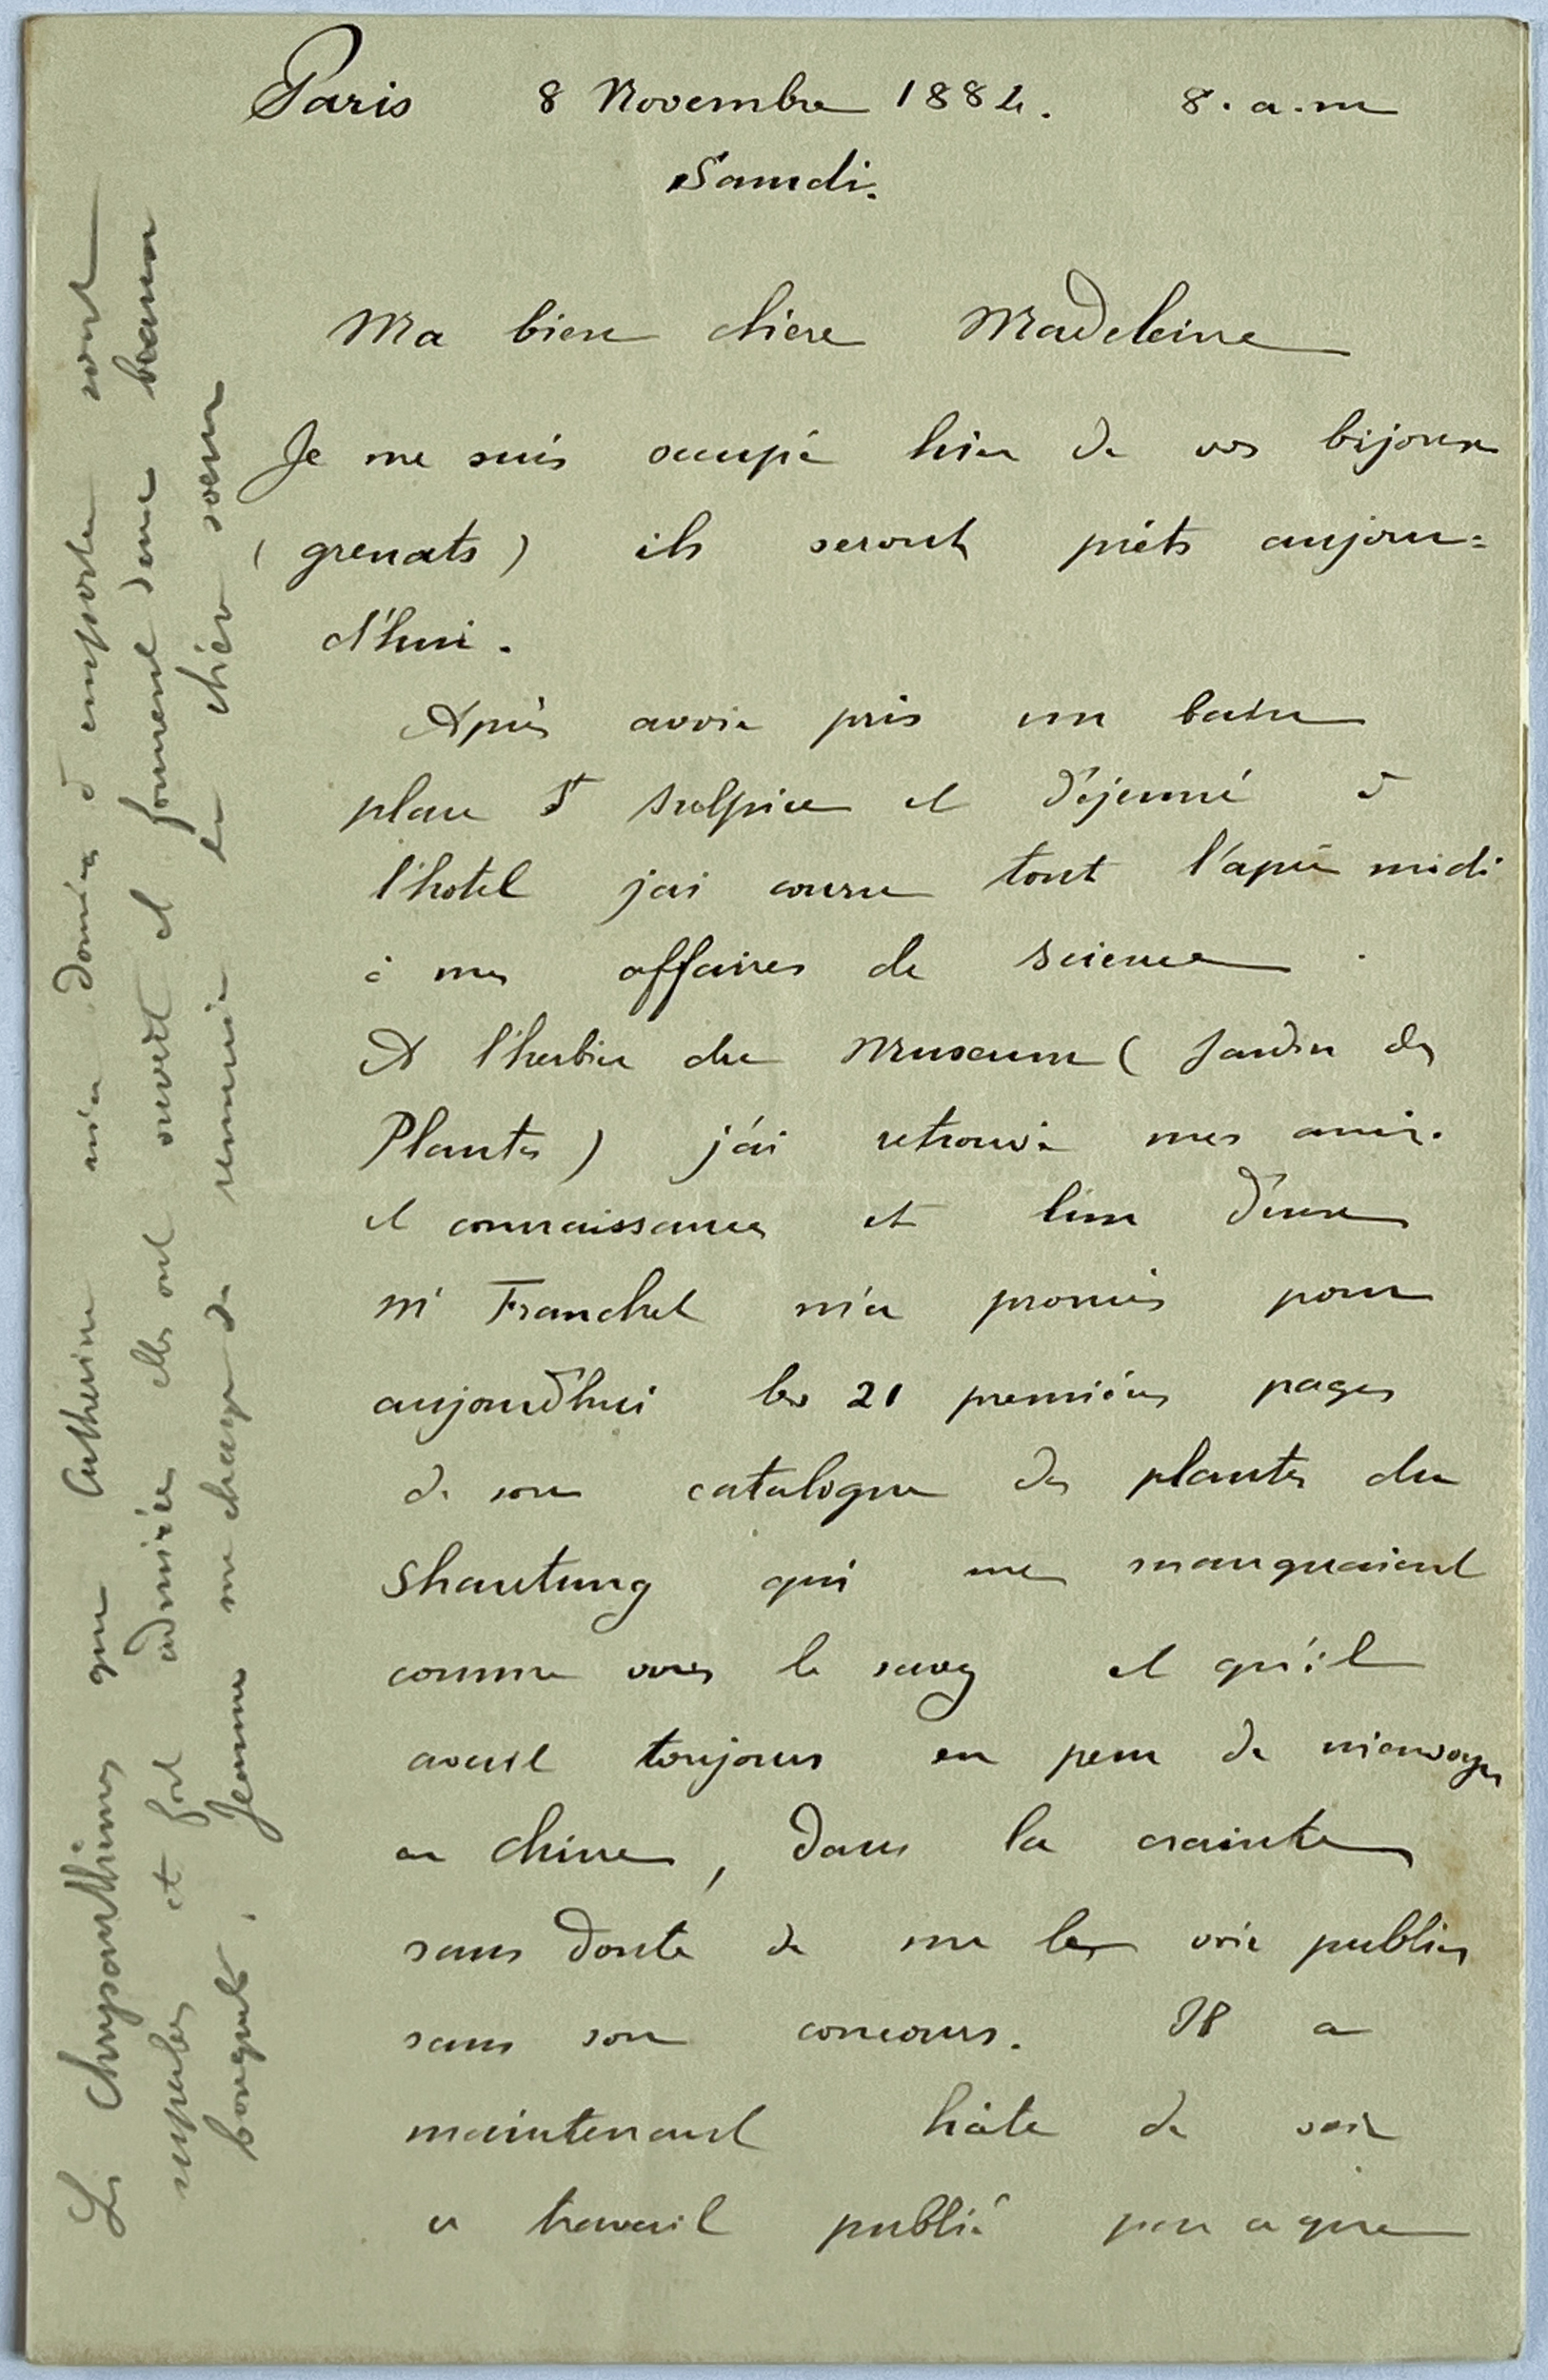 Paris 8 Novembre 1884. 8. a.m
Samdi.
Ma bien chère Madeleine
Je me suis occupé hier de vos bijoux
(grenats) ils seront prêts aujour=
d'hui.
Après avoir pris un bain
place St Sulpice et déjeuné à
l'hotel j'ai couru tout l'après midi
à mes affaires de science.
A l'herbier du Museum (Jardin des
Plantes) j'ai retrouvé mes amis
et connaissances et l'un d'eux
Mr Franchet m'a promis pour
aujourd'hui les 21 premières pages
de son catalogue des plantes du
Shantung qui me manquaient
comme vous le savez et qu'il
avait toujours eu peur de m'envoyer
en Chine, dans la crainte
sans doute de me les voir publier
sans son concours. Il a
maintenant hâte de voir
ce travail publié parce que
Les Chrysanthèmes que Catherine m'a données à emporter sont
superbes et fort admirées elles ont ouvert et forment deux beaux
bouquets. Jeanne me charge de remercier sa chère soeur